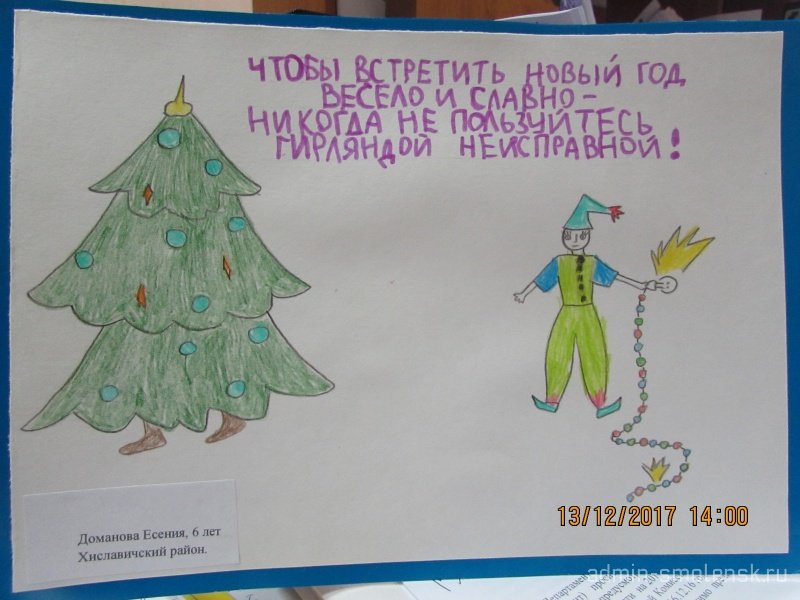 ЧТОБЫ ВСТРЕТИТЬ НОВЫЙ ГОД
ВЕСЕЛО И СЛАВНО-
НИКОГДА НЕ ПОЛЬЗУЙТЕСЬ
ГИРЛЯНДОЙ НЕИСПРАВНОЙ!
Доманова Есения, 6 лет
Хиславичский район.
13/12/2017 14:00
admin-smolensk.ru